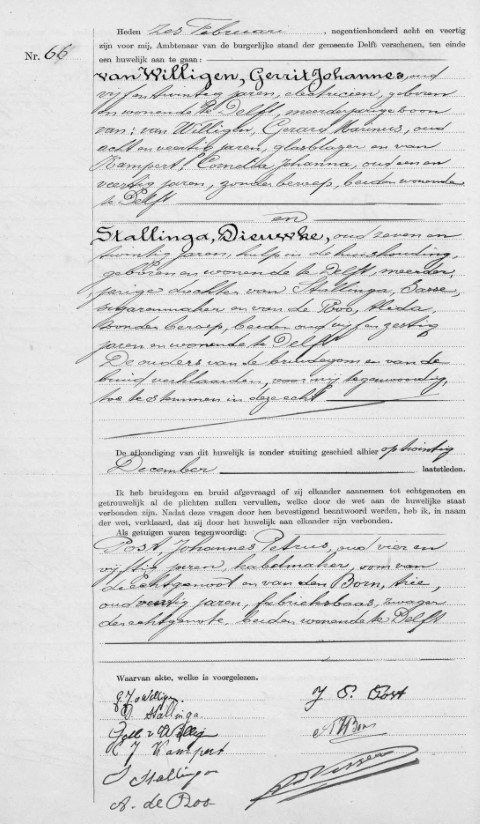 Heden zes Februari, negentienhonderd acht en veertig
zijn voor mij, Ambtenaar van de burgerlijke stand der gemeente Delft verschenen, ten einde
een huwelijk aan te gaan:
Nr. 66
van Willigen, Gerrit Johannes, oud
vijf en twintig jaren, electricien, geboren
en wonende te Delft, meerderjarige zoon
van: van Willigen, Gerard Marinus, oud
acht en veertig jaren, glasblazer en van
Kampert, Cornelia Johanna, oud een en
veertig jaren, zonder beroep, beiden wonende
te Delft
en
Stallinga, Dieuwke, oud zeven en
twintig jaren, hulp in de huishouding,
geboren en wonende te Delft, meerder-
jarige dochter van Stallinga, Sasse,
sigarenmaker en van de Boo, Alida,
zonder beroep, beiden oud vijf en zestig
jaren en wonende te Delft
De ouders van de bruidegom en van de
bruid verklaarden, voor mij tegenwoordig,
toe te stemmen in deze echt
De afkondiging van dit huwelijk is zonder stuiting geschied alhier op twintig
December laatstleden.
Ik heb bruidegom en bruid afgevraagd of zij elkander aannemen tot echtgenoten en
getrouwelijk al de plichten zullen vervullen, welke door de wet aan de huwelijke staat
verbonden zijn. Nadat deze vragen door hen bevestigend beantwoord werden, heb ik, in naam
der wet, verklaard, dat zij door het huwelijk aan elkander zijn verbonden.
Als getuigen waren tegenwoordig:
Post, Johannes Petrus, oud vier en
vijftig jaren, kabelmaker, oom van
de echtgenoot en van den Born, Arie,
oud veertig jaren, fabrieksbaas, zwager
der echtgenote, beiden wonende te Delft
Waarvan akte, welke is voorgelezen.
G J v Willigen
D. Stallinga
J P. Post
C J Kampert
S Stallinga
A. de Boo